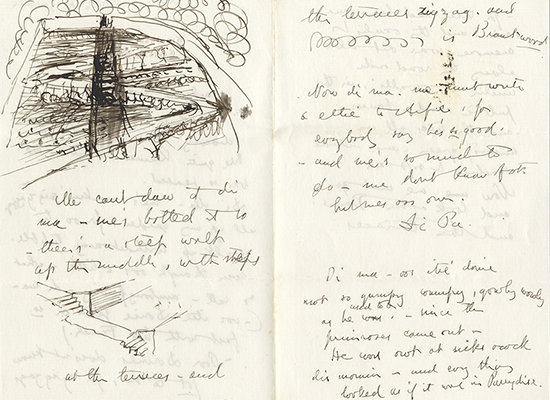 Me can't draw it di
ma - me's botted it so
- there's a steep walk
up the middle, with steps
at the terraces - and
the terraces zigzag. and
is Brantwood
Now di ma. me must write
a ettie to
evybody say he's so good.
- and me's so much to
do - me dont know fot.
but mes oos own.
Di Pa.
Di ma - oos 'tie donie
not so gumpy wumpy, gowly wowly
and to by
as he was. - since the
primroses came out -
He was out at sicks ocock
dis mornin - and evy thing
looked as if it was in Pawydise.